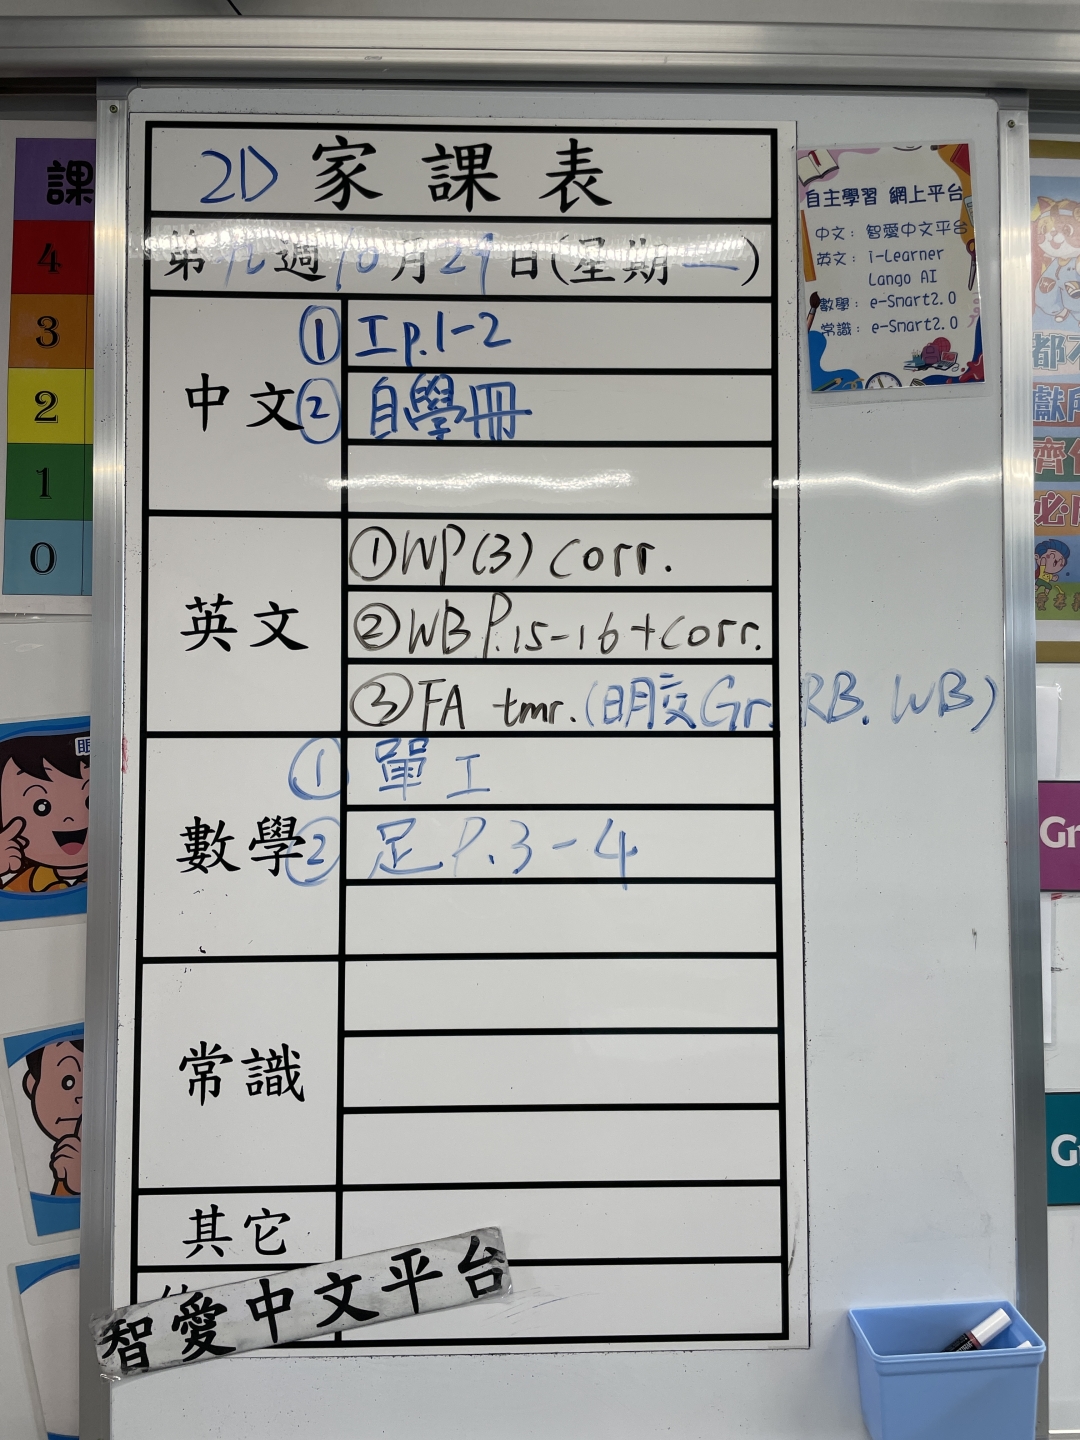 2D 家課表
第九週10月29日(星期一)
中文
① 工p.1-2
② 自學冊
英文
①WP(3) corr.
②WB P.15-16+corr.
③FA tmr.(明交Gr. RB. WB)
數學
① 單工
② 足P.3-4
常識
其它
智愛中文平台
自主學習 網上平台
中文：智愛中文平台
英文：i-Learner
Lango AI
數學：e-Smart2.0
常識：e-Smart2.0
課
4
3
2
1
0
眼
Gr